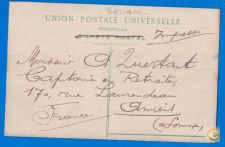 UNION POSTALE UNIVERSELLE
PORTUGAL
BILHETE POSTAL
Monsieur A Quertant
Capitaine en Retraite,
170, rue Laurendeau
Amiens
France
(Somme)